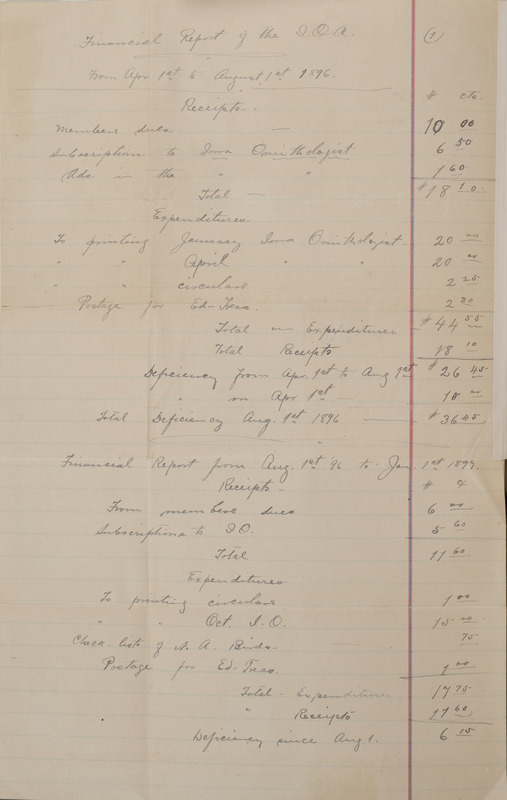 Financial Report of the I.O.A. (1)
From Apr 1st to August 1st 1896.
Receipts. $ cts.
Members dues — 10 00
Subscriptions to Iowa Ornithologist 6 50
Ads. in the " " 1 60
Total — $18 10
Expenditures
To printing January Iowa Ornithologist 20 00
" " April " " 20 00
" " circulars 2 25
Postage for Ed-Treas. 2 30
Total — Expenditures — $44 55
Total Receipts 18 10
Deficiency from Apr. 1st to Aug 1st $26 45
" on Apr 1st — 10 00
Total Deficiency Aug. 1st 1896 — $36 45
Financial Report from Aug. 1st '96 to Jan. 1st 1897.
Receipts — $ ¢
From members dues 6 00
Subscriptions to I.O. 5 60
Total 11 60
Expenditures
To printing circulars 1 00
" " Oct. I.O. 15 00
Check lists of N. A. Birds 75
Postage for Ed-Treas. 1 00
Total - Expenditures 17 75
" Receipts 11 60
Deficiency since Aug 1. 6 15